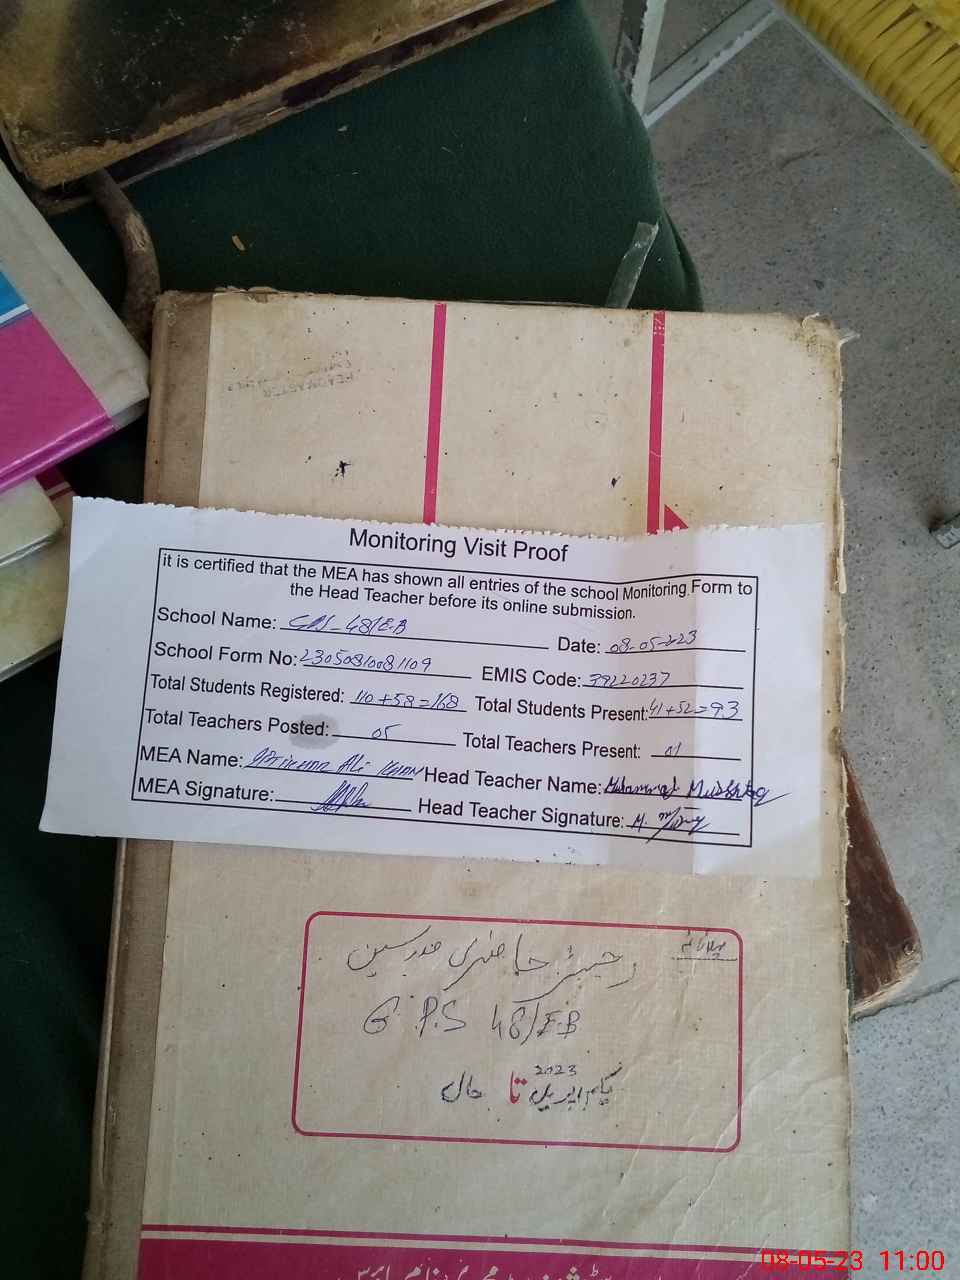 Monitoring Visit Proof
it is certified that the MEA has shown all entries of the school Monitoring Form to
the Head Teacher before its online submission.
School Name: GPS-48/E.B Date: 08-05-2023
School Form No: 23050810081109 EMIS Code: 39220237
Total Students Registered: 110+58=168 Total Students Present: 41+52=93
Total Teachers Posted: 05 Total Teachers Present: 01
MEA Name: Iftikhar Ali Khan Head Teacher Name: Muhammad Mushtaq
MEA Signature: Head Teacher Signature: M.
رجسٹر حاضری مدرسین
G.P.S 48/E.B
یکم اپریل 2023 تا حال
08-05-23 11:00